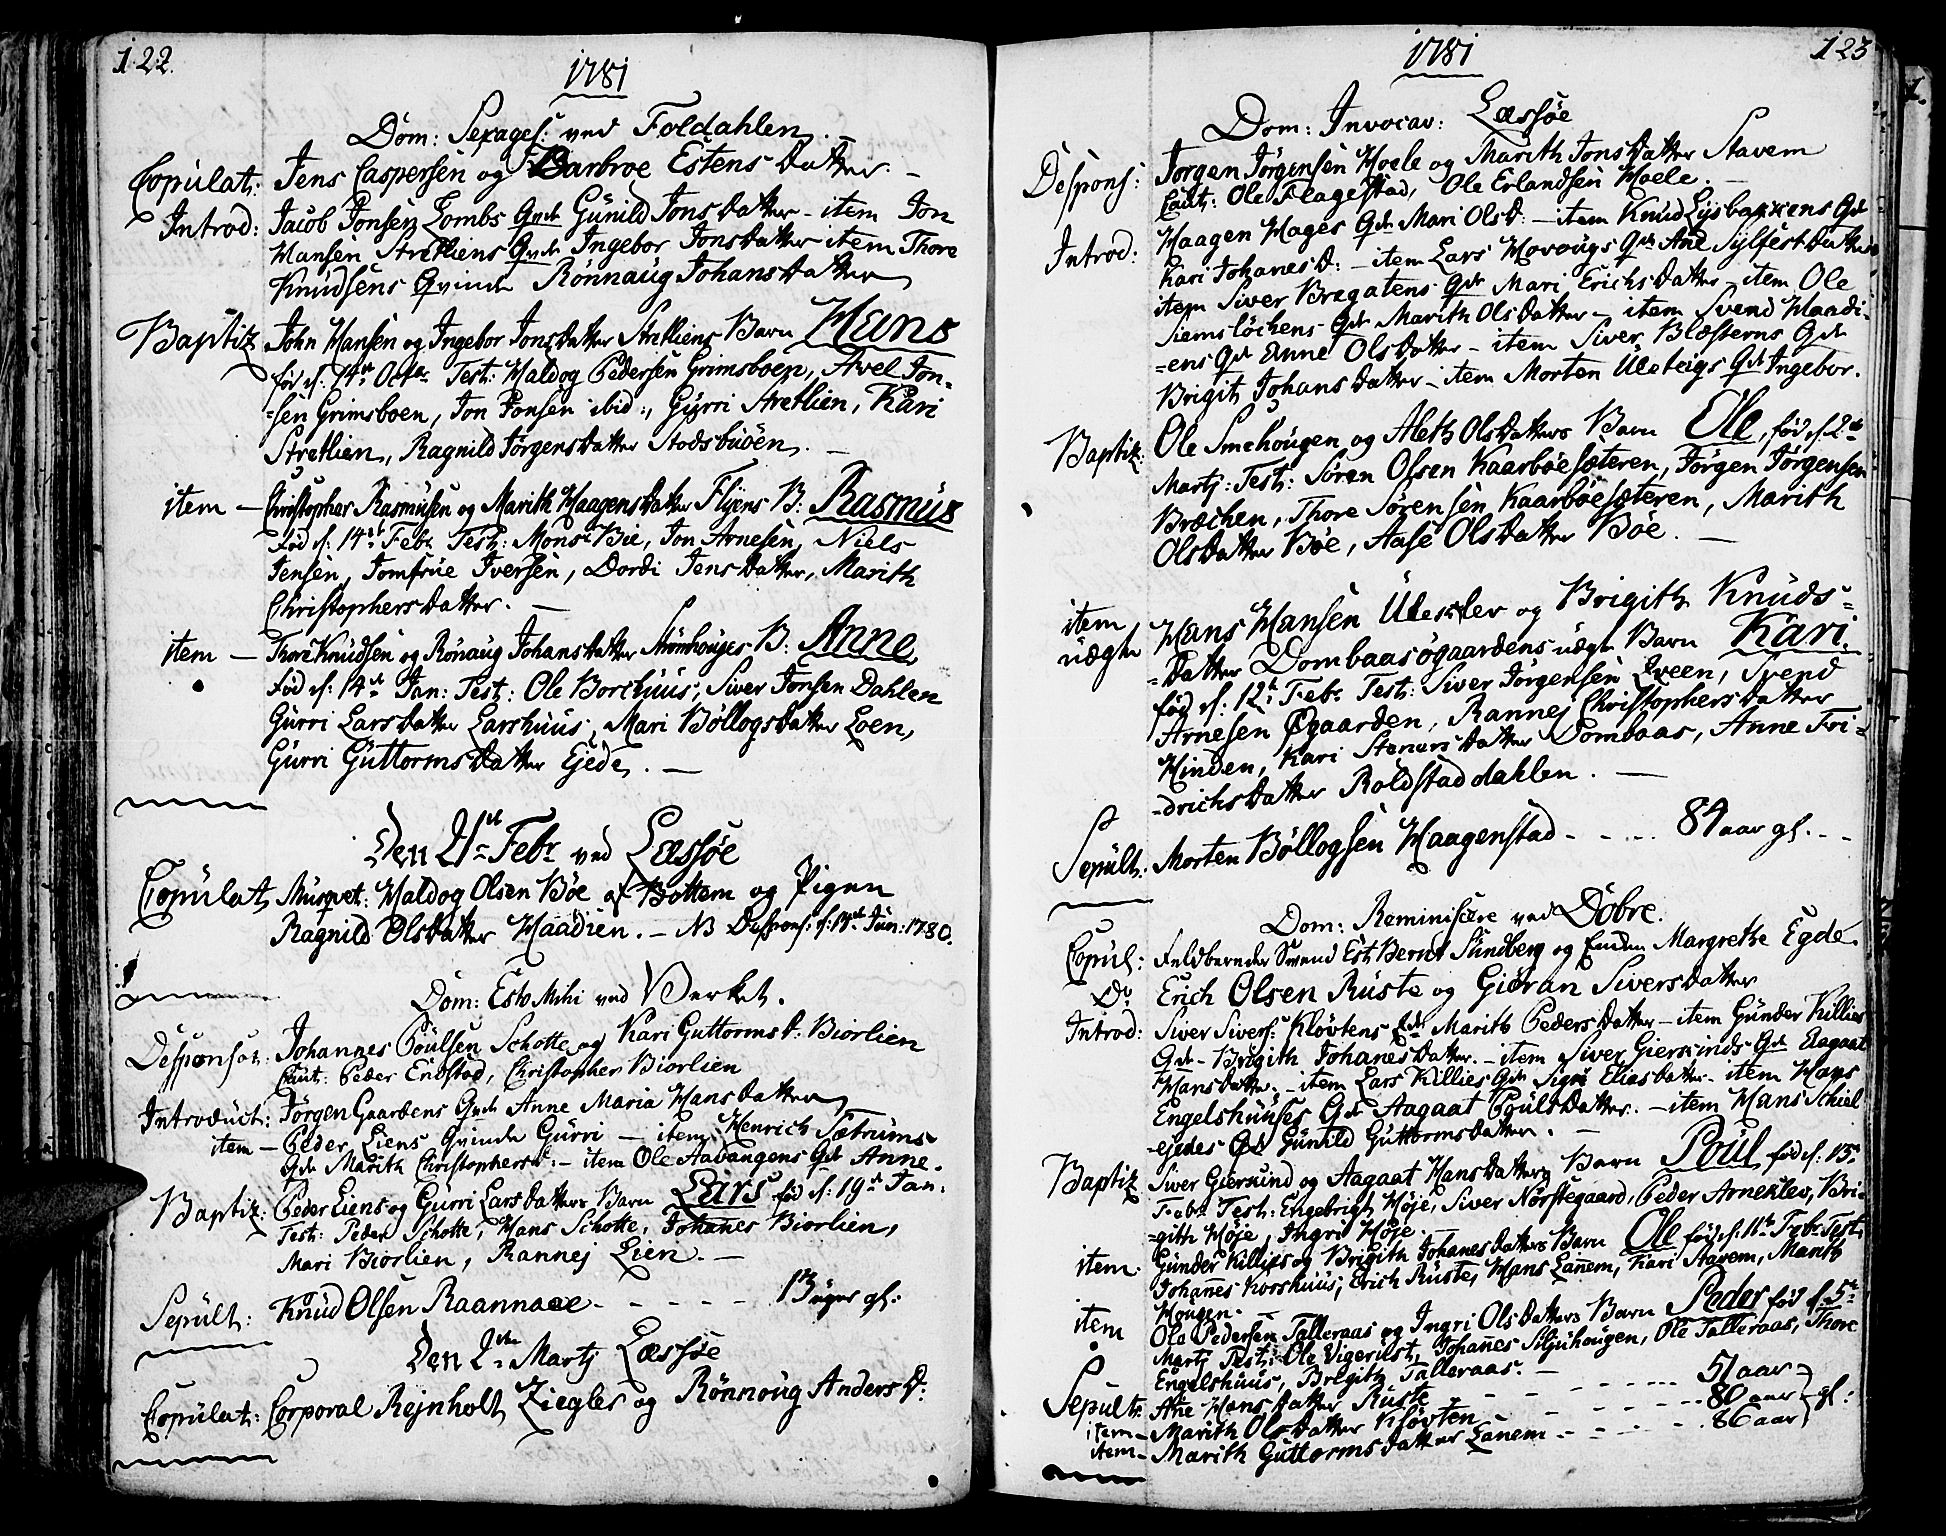 122.
1781
Dom: Sexages: ved Foldahlen.
Copulat: Jens Caspersen og Barbroe Estens Datter. -
Introd: Jacob Jonsen Lombs Qvde Gunild Jons Datter - item Jon
Hansen Stretliens Qvde Ingebor JonsDatter item Thore
Knudsens Qvinde Rönnaug Johans Datter
Baptiz John Hansen og Ingebor Jons Datter Stretliens Barn Hans
föd d: Octbr Test: Haldog Pedersen Grimsboen, Axel Jon-
-sen Grimsboen, Jon Jonsen ibid:, Gurri Stretlien, Kari
Stretlien, Ragnild Jörgens Datter Stodsbuöen. -
item - Christopher Rasmusen og Marith Haagens Datter Flyens B: Rasmus
föd d: 14de Febr Test: Monsr Bie, Jon Arnesen, Niels
Jensen, Jomfrue Iversen, Dordi Jens Datter, Marith
Christophers Datter. -
item - Thore Knudsen og Rönaug Johans Datter B: Anne
föd d: 14de Jan: Test: Ole Borchuus, Siver Jonsen Dahlen
Gurri Lars Datter Larshuus, Mari Böllogs Datter Loen,
Gurri Guttorms Datter Ejede. -
Den 21de Febr ved Læssöe
Copulat Musqvet: Haldog Olsen Böe af Bottem og Pigen
Ragnild Ols Datter Haadien. - NB Despons: d: Jun: 1780.
Dom: Esto Mihi ved Verket.
Desponsat: Johannes Poulsen Schotte og Kari Guttorms D: Biorlien
Caut: Peder Endstad, Christopher Biorlien
Introduct: Jörgen Gaardens Qvde Anne Maria Hans Datter
item - Peder Liens Qvinde Gurri - item Henrich Sætrums
Qde Marith Christophersd: - item Ole Aavangens Qde Anne.
Baptiz: Peder Liens og Gurri Lars Datters Barn Lars föd d: 19de Jan.
Test: Peder Schotte, Hans Schotte, Johanes Biorlien,
Mari Biorlien, Rannej Lien. -
Sepult: Knud Olsen Raannaae - - - - - 13 uger gl:
Den 2den Martj Læssöe
Copulat: Corporal Rejnholt Ziegler og Rönnoug Anders D:
123
1781
Dom: Invocav: Læssöe
Despons: Jörgen Jörgensen Hoele og Marith Jons Datter Stavem
Caut: Ole Flagestad, Ole Erlandsen Hoele. -
Introd: Haagen Hages Qde Mari Ols D: - item Knud Lysbakkens Qde
Kari Johanes D: - item Lars Hovougs Qde Ane Sylfest Datter
item Siver Bregatens Qde Mari Erichs Datter item Ole
Siemslöchens Qde Marith Ols Datter - item Svend Haadi-
-ens Qde Anne Ols Datter - item Siver Blæsterns Qde
Brigit Johans Datter - item Morten Uleteigs Qde Ingebor.
Baptiz: Ole Smehougen og Aleth Ols Datters Barn Ole, föd d: 2de
Martj: Test: Sören Olsen Kaarböesæteren, Jörgen Jörgensen
Bræchen, Thore Sörensen Kaarböesæteren, Marith
Ols Datter Böe, Aase Ols Datter Böe. -
item
uægte Hans Hansen Uleklev og Brigith Knuds-
-Datter Dombaasögaardens uægte Barn Kari.
föd d: 12te Febr Test: Siver Jörgensen Qveen, Svend
Arnesen Øgaarden, Rannej Christophers Datter
Hinden, Kari Steners Datter Dombaas, Anne Fri-
-drichs Datter Roldstaddahlen. -
Sepult: Morten Böllogsen Haagenstad - - - - 84 aar gl. - -
Dom: Reminiscere ved Dobre.
Copul: Feldbereder Svend Est Bernt Sundberg og Enken Margrethe Egde.
Do Erich Olsen Ruste og Giöran Sivers Datter
Introd: Siver Sivers: Klövtens Qde Marith Peders Datter - item Gunder Killies
Qde - Brigith Johanes Datter. - item Siver Giersinds Qde Aagaat
Hans Datter. - item Lars Killies Qde Sigri Elias Datter - item Hans
Engelshuuses Qde Aagaat Pouls Datter. - item Hans Schiel
-ejedes Qde Gunild Guttorms Datter. -
Baptiz Siver Giersund og Aagaat Hans Datters Barn Poul föd d: 13
Febr Test: Engebrigt Höje, Siver Norstegaard, Peder Arneklev, Bri-
-gith Höje, Ingri Höje.
item Gunder Killies og Brigith Johanes Datters Barn Ole föd d: 11te Febr Test:
Johanes Korshuus, Erich Ruste, Hans Lanem, Kari Stavem, Marith
Hougen. -
item Ole Pedersen Talleraas og Ingri Ols Datters Barn Peder föd d. 5te
Martj Test: Ole Vigerust, Johanes Siljuhougen, Ole Talleraas, Thore
Engelshuus, Brigith Talleraas. -
Sepult: Ane Hans Datter Ruste - - - - - - 51 aar
item - Marith Ols Datter Klövten - - - - - - 80 aar gl:
item - Marith Guttorms Datter Lanem - - - - - 86 aar